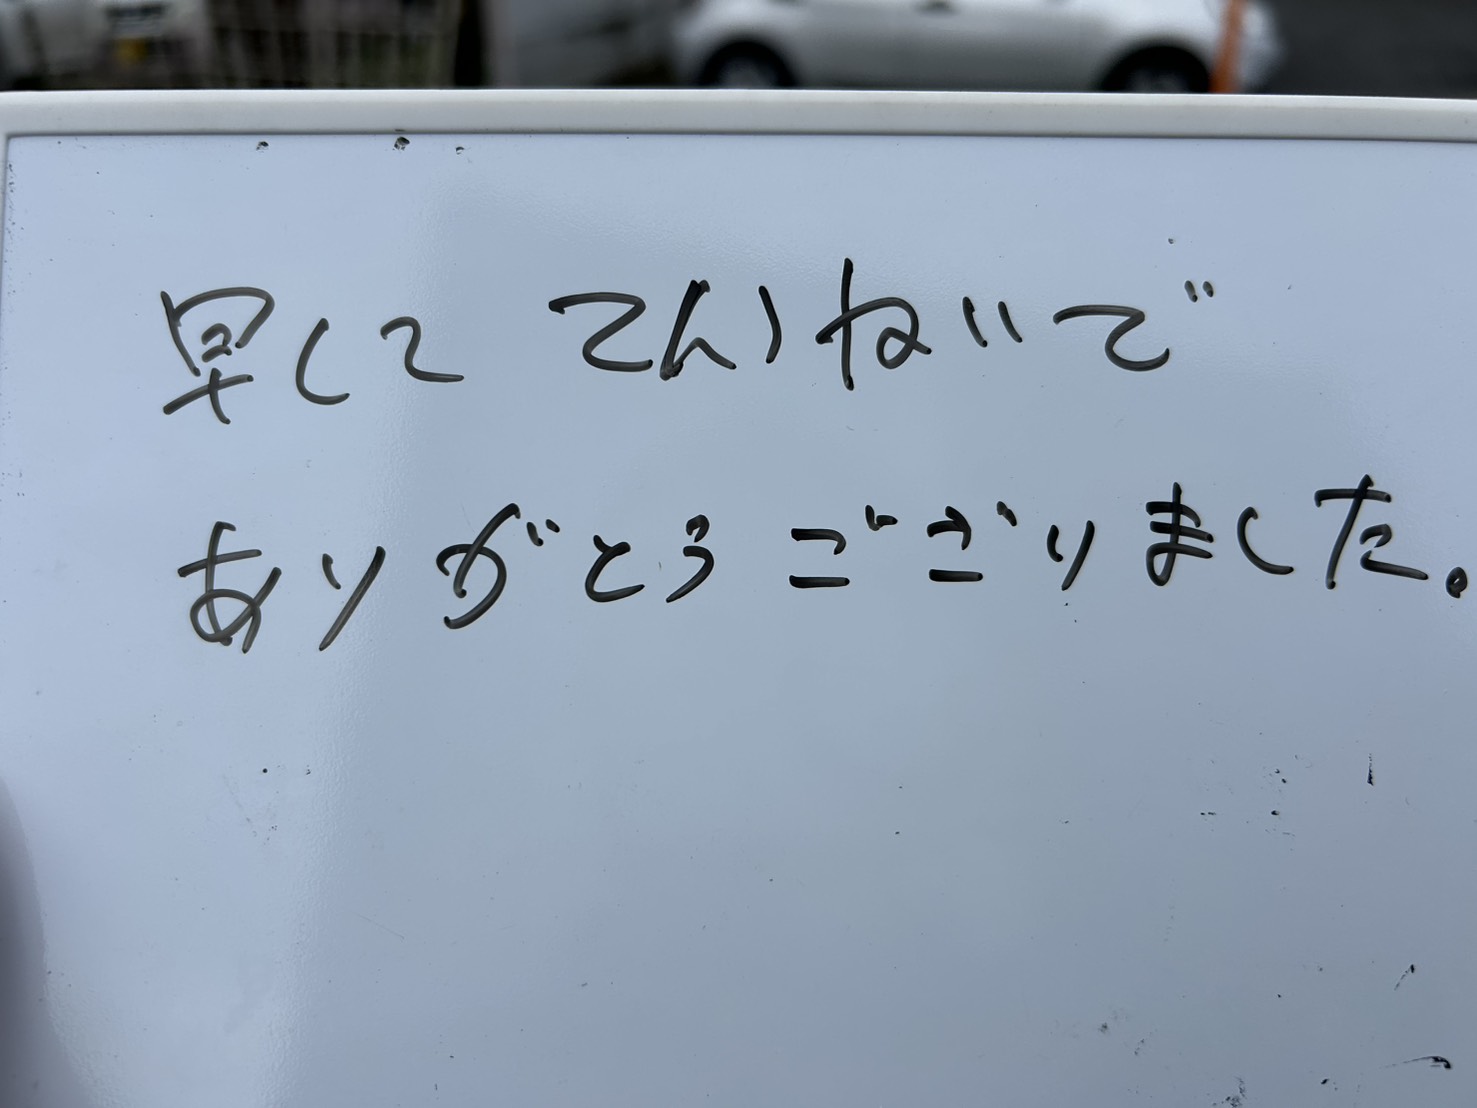 早くて ていねいで
ありがとうございました。